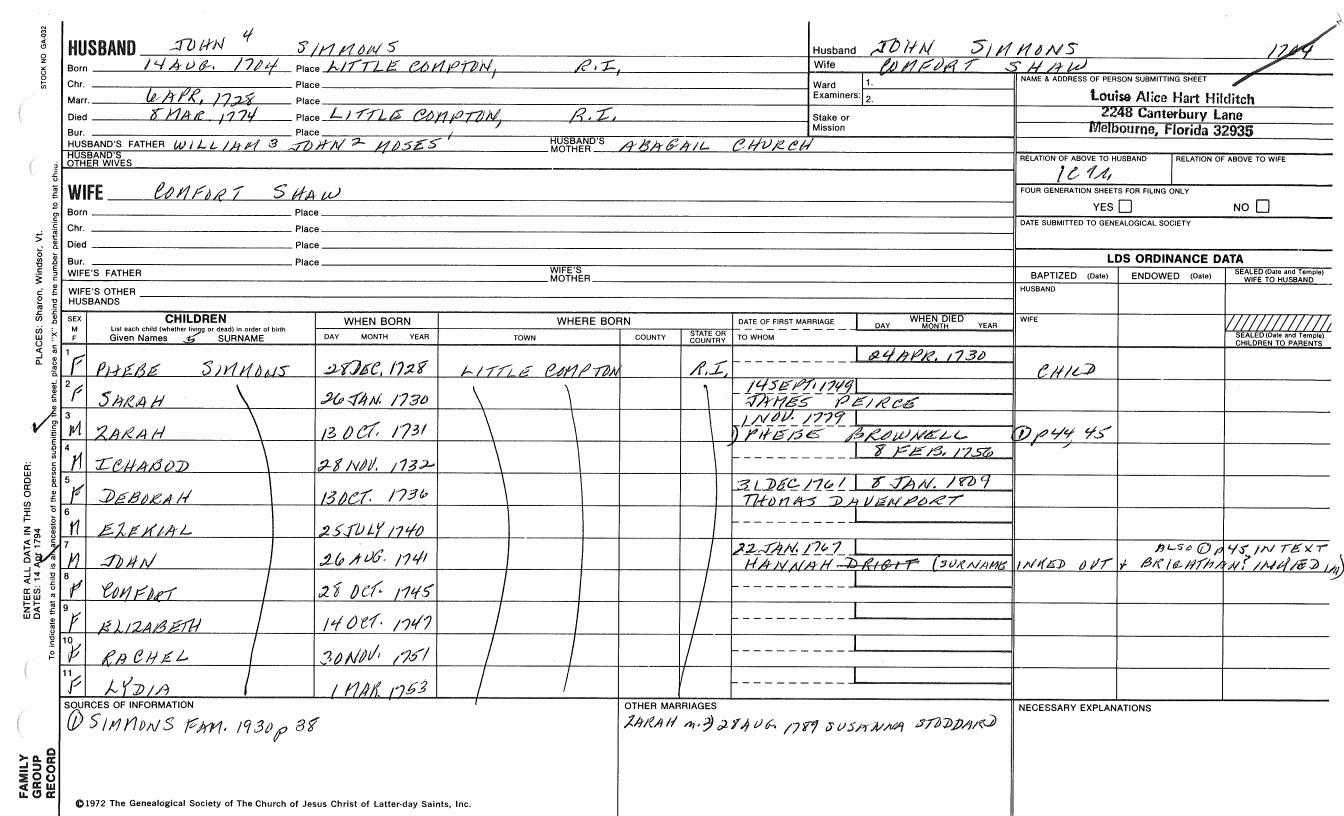 STOCK NO GA-002
HUSBAND JOHN 4 SIMMONS
Born 14 AUG. 1704 Place LITTLE COMPTON, R.I.
Chr. Place
Marr. 6 APR. 1728 Place
Died 8 MAR. 1774 Place LITTLE COMPTON, R.I.
Bur. Place
HUSBAND'S FATHER WILLIAM 3 JOHN 2 MOSES 1 HUSBAND'S MOTHER ABAGAIL CHURCH
HUSBAND'S OTHER WIVES
WIFE COMFORT SHAW
Born Place
Chr. Place
Died Place
Bur. Place
WIFE'S FATHER WIFE'S MOTHER
WIFE'S OTHER HUSBANDS
Husband JOHN SIMMONS 1704
Wife COMFORT SHAW
Ward Examiners: 1. 2.
Stake or Mission
NAME & ADDRESS OF PERSON SUBMITTING SHEET
Louise Alice Hart Hilditch
2248 Canterbury Lane
Melbourne, Florida 32935
RELATION OF ABOVE TO HUSBAND RELATION OF ABOVE TO WIFE
FOUR GENERATION SHEETS FOR FILING ONLY
YES NO
DATE SUBMITTED TO GENEALOGICAL SOCIETY
LDS ORDINANCE DATA
BAPTIZED (Date) ENDOWED (Date) SEALED (Date and Temple) WIFE TO HUSBAND
HUSBAND
WIFE
SEALED (Date and Temple) CHILDREN TO PARENTS
SEX M F CHILDREN WHEN BORN WHERE BORN DATE OF FIRST MARRIAGE WHEN DIED
List each child (whether living or dead) in order of birth
Given Names 5 SURNAME DAY MONTH YEAR TOWN COUNTY STATE OR COUNTRY TO WHOM DAY MONTH YEAR
24 APR. 1730
1 F PHEBE SIMMONS 28 DEC. 1728 LITTLE COMPTON R.I. CHILD
14 SEPT. 1749
2 F SARAH 26 JAN. 1730 JAMES PEIRCE
1 NOV. 1779
3 M ZARAH 13 OCT. 1731 1) PHEBE BROWNELL ① p 44, 45
8 FEB. 1756
4 M ICHABOD 28 NOV. 1732
31 DEC 1761 8 JAN. 1809
5 F DEBORAH 13 OCT. 1736 THOMAS DAVENPORT
6 M EZEKIAL 25 JULY 1740
22 JAN. 1767 ALSO ① p 45, IN TEXT
7 M JOHN 26 AUG. 1741 HANNAH DRIGIT (SURNAME INKED OUT + BRIGHTMAN? INKED IN)
8 F COMFORT 28 OCT. 1745
9 F ELIZABETH 14 OCT. 1747
10 F RACHEL 30 NOV. 1751
11 F LYDIA 1 MAR 1753
SOURCES OF INFORMATION
① SIMMONS FAM. 1930 p 38
OTHER MARRIAGES
ZARAH m. 2) 28 AUG. 1789 SUSANNA STODDARD
NECESSARY EXPLANATIONS
©1972 The Genealogical Society of The Church of Jesus Christ of Latter-day Saints, Inc.
FAMILY GROUP RECORD
ENTER ALL DATA IN THIS ORDER:
DATES: 14 Apr 1794 PLACES: Sharon, Windsor, Vt.
To indicate that a child is an ancestor of the person submitting the sheet, place an "X" behind the number pertaining to that child.